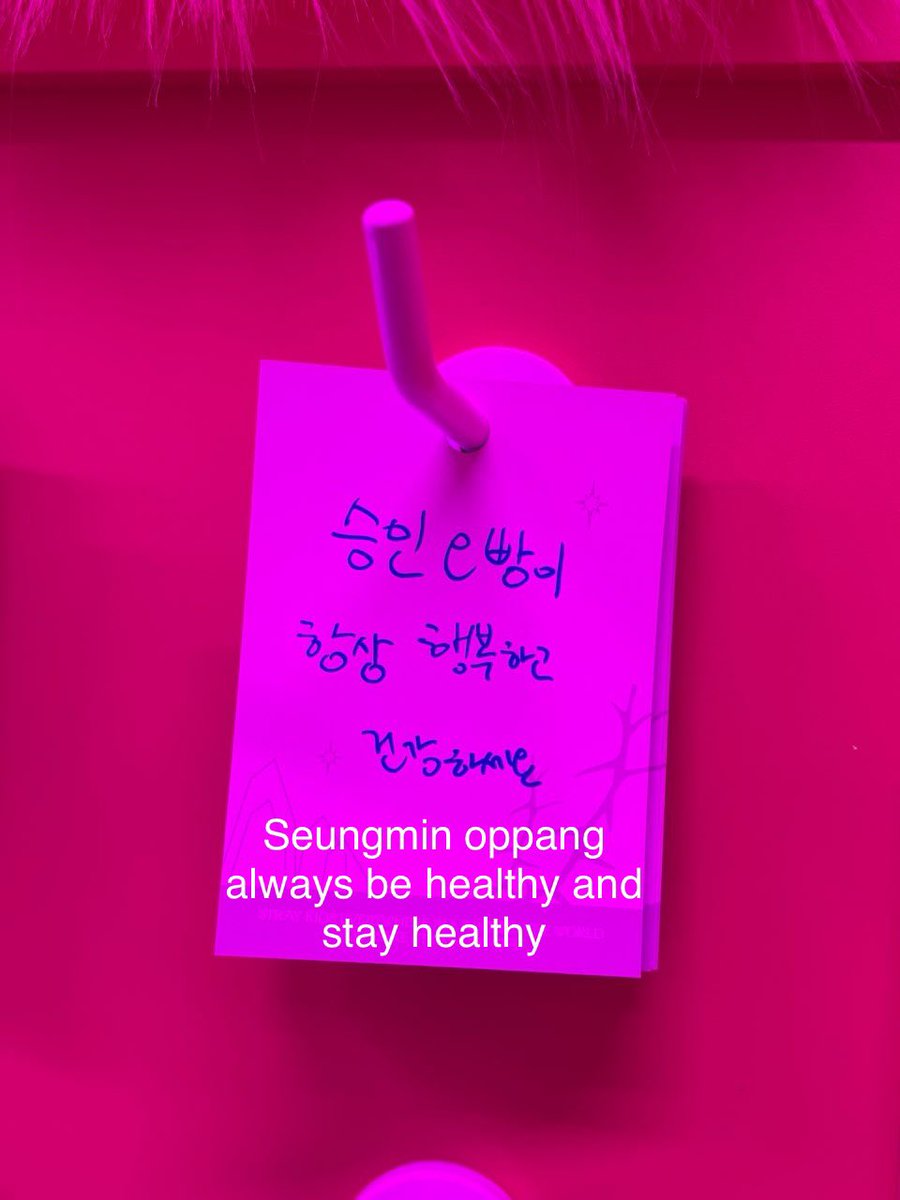 승인 e빵이
항상 행복하고
건강하세요
Seungmin oppang
always be healthy and
stay healthy